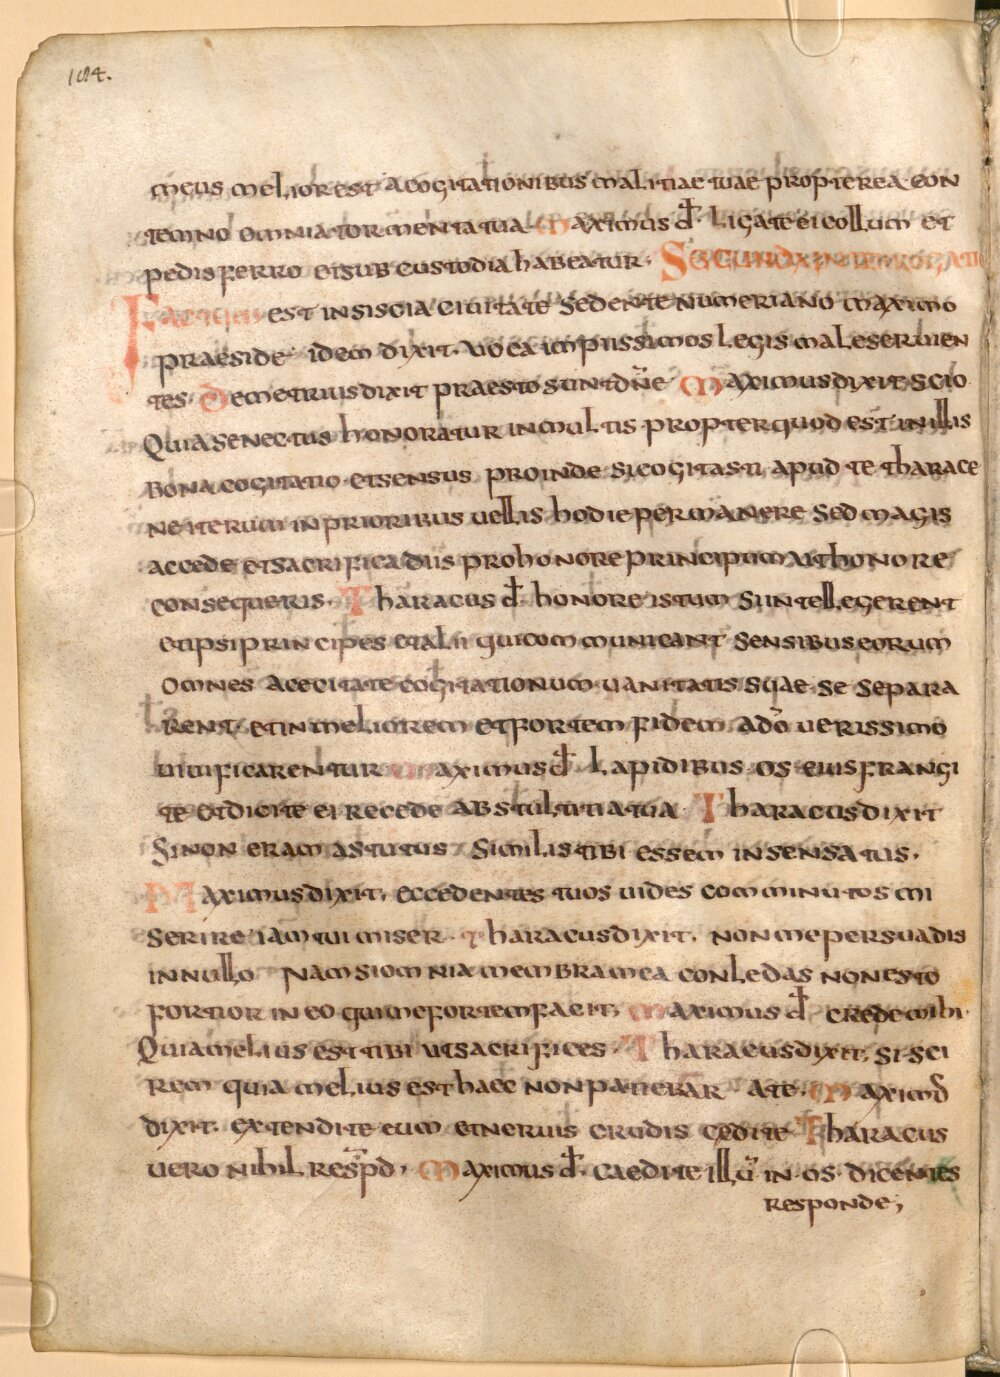 184.
meus melior est a cogitationibus malitiae tuae propterea con
temno omnia tormenta tua. Maximus đ. ligate ei collum et
pedis ferro et sub custodia habeatur. Secunda
Factum est in siscia civitate sedente numeriano maximo
praeside. idem dixit. voca impiissimos legis male servien
tes. Demetrius dixit praesto sunt dn̄e Maximus dixit. scio
quia senectus honoratur in multis propter quod est in illis
bona cogitatio et sensus proinde si cogitasti apud te tharace
ne iterum in prioribus vellis hodie permanere sed magis
accede et sacrifica diis pro honore principum ut honore
consequeris. Tharacus đ. honore istum si intellegerent
et ipsi principes et alii qui communicant sensibus eorum
omnes a cecitate cogitationum vanitatis suae se separa
rent et in meliorem et fortem fidem ad dō verissimo
vivificarentur Maximus đ lapidibus os eius frangi
te et dicite ei recede ab stultitia tua. Tharacus dixit
Si non eram astutus similis tibi essem insensatus.
Maximus dixit. ecce dentes tuos vides comminutos mi
serire iam tui miser. Tharacus dixit. non me persuadis
in nullo Nam si omnia membra mea conledas non esto
fortior in eo qui me fortem facit. Maximus đ crede mihi.
Quia melius est tibi ut sacrifices. Tharacus dixit. si sci
rem quia melius est haec non patiebar a te. Maximus
dixit. extendite eum et nervis crudis cedite Tharacus
vero nihil resp̄d. Maximus đ. caedite illū in os dicentes
responde;